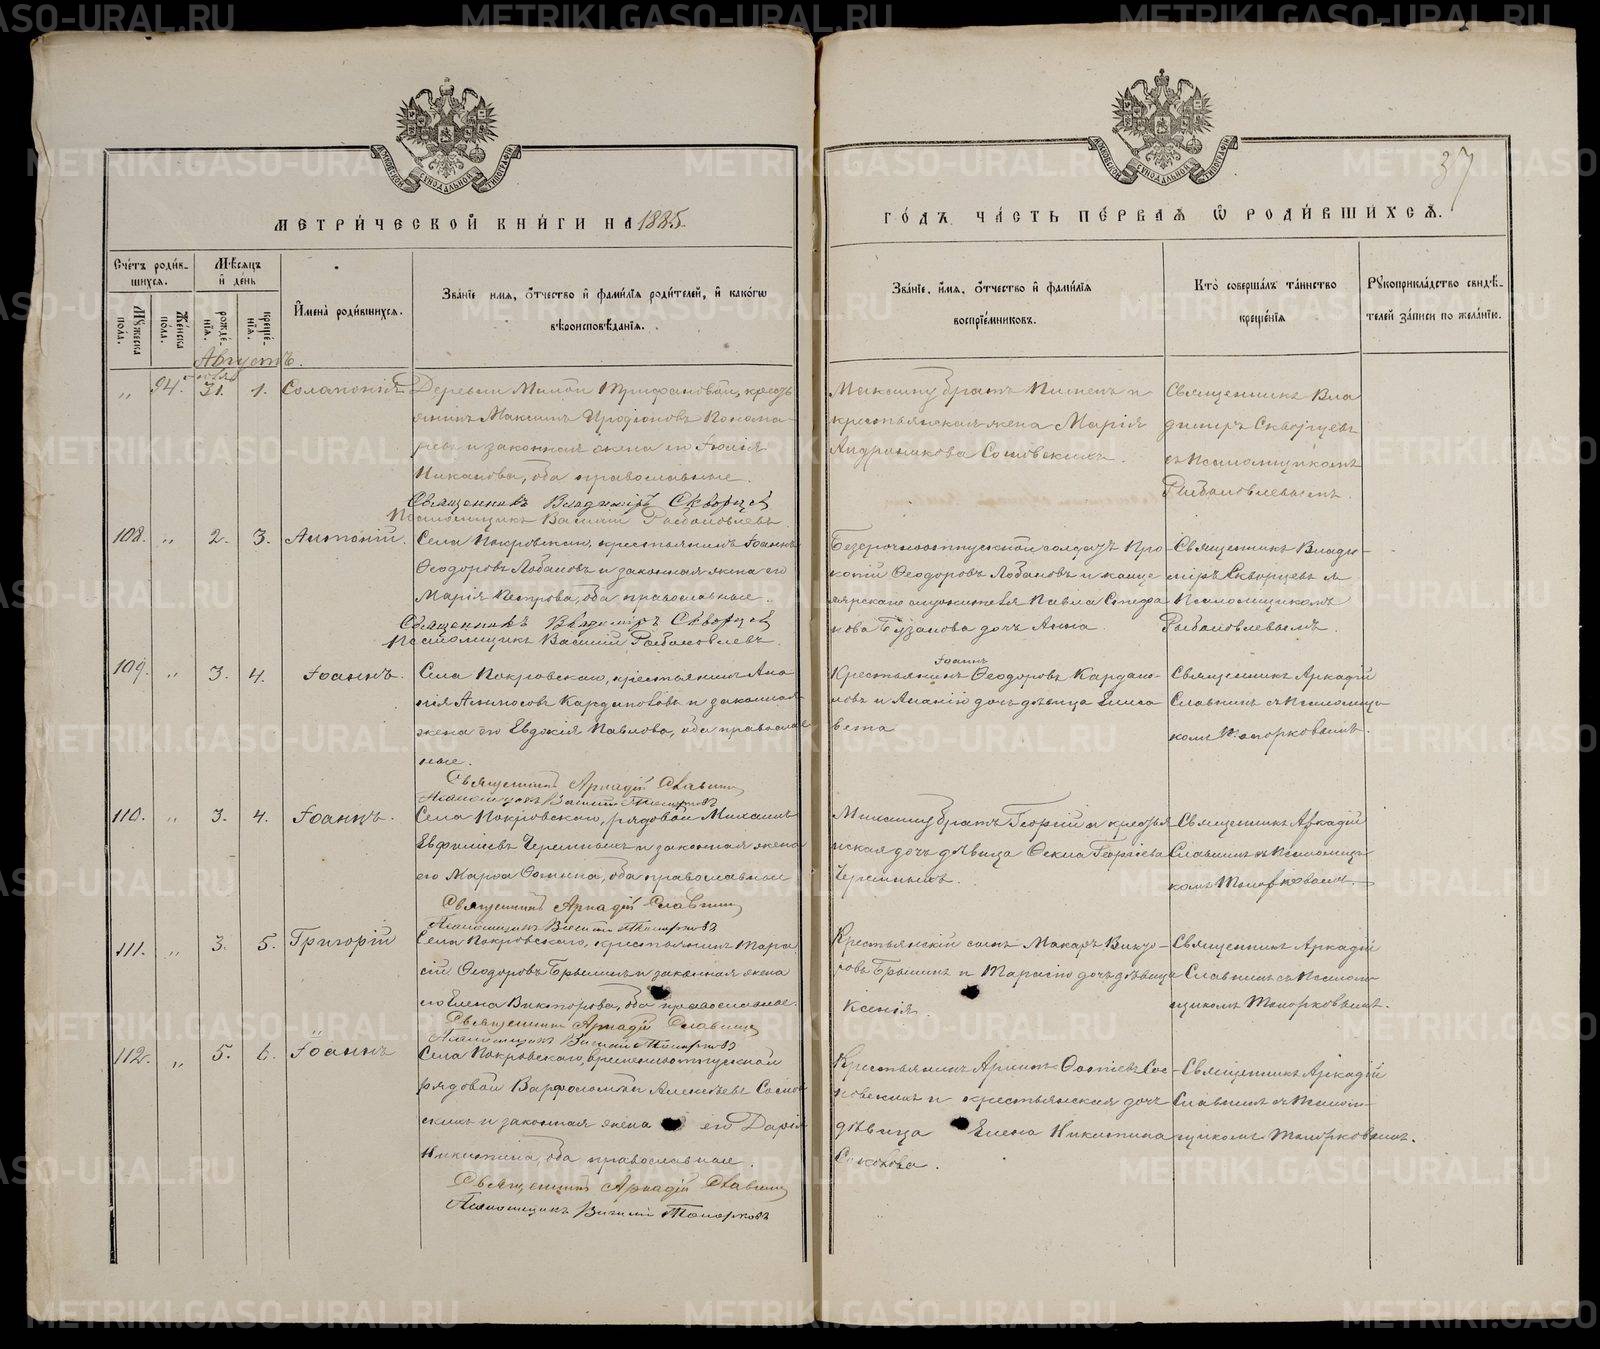 МЕТРИ́ЧЕСКОЙ КНИ́ГИ НА 1885
ГО́ДЪ ЧА́СТЬ ПЕ́РВАЯ Ѡ РОДИ́ВШИХСЯ.
37
Сче́тъ роди́в-
шихся.
Мѣ́сяцъ
и де́нь
Му́жеска
по́ла.
Же́нска
по́ла.
рожде́-
нїя.
креще́-
нїя.
И҆мена̀ роди́вшихся.
Зва́нїе имя, о҆́тчество и҆ фами́лїя роди́телей, и҆ како́гѡ
вѣроисповѣ́данїя.
Зва́нїе, и҆́мя, о҆́тчество и҆ фами́лїя
воспрїе́мниковъ.
Кто̀ соверша́лъ та́инство
креще́нїя
Рукоприкла́дство свидѣ́-
телей за́писи по жела́нїю.
Августъ.
„ 94. 31. 1. Соломонія
Деревни Малой Трифановой, кресть
янинъ Максимъ Иродіоновъ Понома-
ревъ и законная жена его Іюлія
Никанова, оба православные.
Священникъ Владиміръ Скворцев
Псаломщикъ Василий Рыболовлевъ
Максиму братъ Пименъ и
крестьянская жена Марія
Андроникова Сосновскихъ.
Священникъ Вла
димиръ Скворцевъ
съ Псаломщикомъ
Рыболовлевымъ.
108. „ 2. 3. Антоній.
Села Покровскаго, крестьянинъ Іоаннъ
Ѳеодоровъ Лобановъ и законная жена его
Марія Петрова, оба православные.
Священникъ Владимиръ Скворцев
Псаломщикъ Василий Рыболовлевъ.
Безсрочноотпускной солдатъ Про
копій Ѳеодоровъ Лобановъ и канце
лярскаго служителя Павла Стефа
нова Бузанова дочь Анна.
Священникъ Влади-
миръ Скворцевъ съ
Псаломщикомъ
Рыболовлевымъ.
109. „ 3. 4. Іоаннъ.
Села Покровскаго, крестьянинъ Ана
нія Амосовъ Кардаполовъ и законная
жена его Евдокія Павлова, оба православ
ные.
Священникъ Аркадій Славнинъ
Псаломщикъ Василій Топорковъ
Іоаннъ
Крестьянинъ Ѳеодоровъ Кардапо-
ловъ и Ананіи дочь дѣвица Елиса
вета
Священникъ Аркадій
Славнинъ съ Псаломщи-
комъ Топорковымъ.
110. „ 3. 4. Іоаннъ.
Села Покровскаго, рядовой Михаилъ
Евфиміевъ Черемныхъ и законная жена
его Марѳа Ѳомина, оба православные
Священникъ Аркадій Славнинъ
Псаломщикъ Василій Топорковъ
Михаилу братъ Георгій и крестья
нская дочь дѣвица Ѳекла Георгіева
Черемныхъ.
Священникъ Аркадій
Славнинъ съ Псаломщи-
комъ Топорковымъ.
111. „ 3. 5. Григорій
Села Покровскаго, крестьянинъ Тара
сій Ѳеодоровъ Брылинъ и законная жена
его Елена Викторова, оба православные.
Священникъ Аркадій Славнинъ
Псаломщикъ Василій Топорковъ
Крестьянскій сынъ Макаръ Викто-
ровъ Брылинъ и Тарасію дочь дѣвица
Ксенія.
Священникъ Аркадій
Славнинъ съ Псалом-
щикомъ Топорковымъ.
112. „ 5. 6. Іоаннъ
Села Покровскаго, временноотпускной
рядовой Варѳоломей Алексѣевъ Соснов
скихъ и законная жена его Дарія
Никитина, оба православные.
Священникъ Аркадій Славнинъ
Псаломщикъ Василій Топорковъ
новскихъ и крестьянская дочь
дѣвица Елена Никитина
Соколова.
Священникъ Аркадій
Славнинъ съ Псалом-
щикомъ Топорковымъ.
METRIKI.GASO-URAL.RU